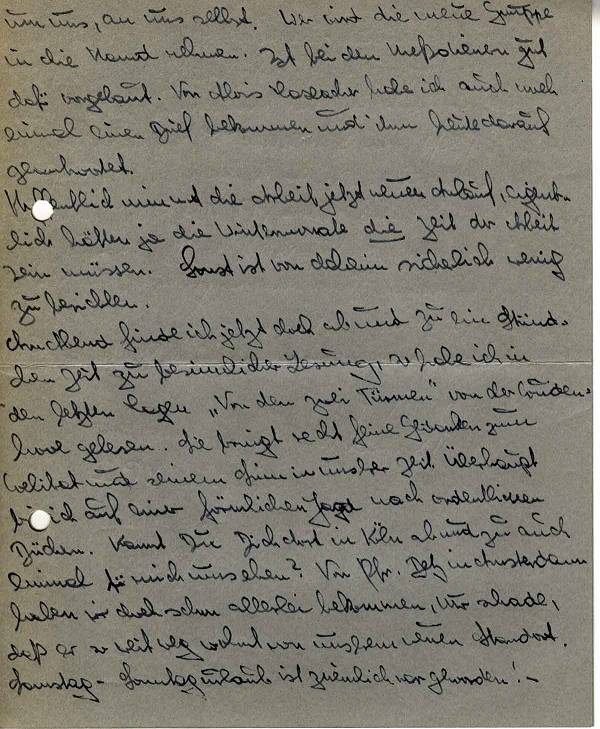 um uns, an uns selbst. Wer wird die neue Gruppe
in die Hand nehmen. Ist bei den Meßdienern gut
dafür vorgebaut. Von Alois habe ich auch noch
einmal einen Brief bekommen und ihm heute darauf
geantwortet.
Hoffentlich nimmt die Arbeit jetzt neuen Anlauf, eigent-
lich hätten ja die Wintermonate die Zeit der Arbeit
sein müssen. Sonst ist von daheim sicherlich wenig
zu berichten.
Anscheinend finde ich jetzt doch ab und zu ein Stünd-
chen Zeit zu besinnlicher Lesung, so habe ich in
den letzten Tagen „Von den zwei Türmen“ von der Couden-
hove gelesen. Sie bringt recht feine Gedanken zum
Zölibat und seinem Sinn in unsrer Zeit. Überhaupt
bin ich auf einer förmlichen Jagd nach ordentlichen
Büchern. Kannst Du Dich dort in Köln ab und zu auch
einmal für mich umsehen? Von Pfr. in Amsterdam
haben wir doch schon allerlei bekommen, nur schade,
daß er so weit weg wohnt von unserm neuen Standort.
Samstag- Sonntagurlaub ist ziemlich rar geworden! -